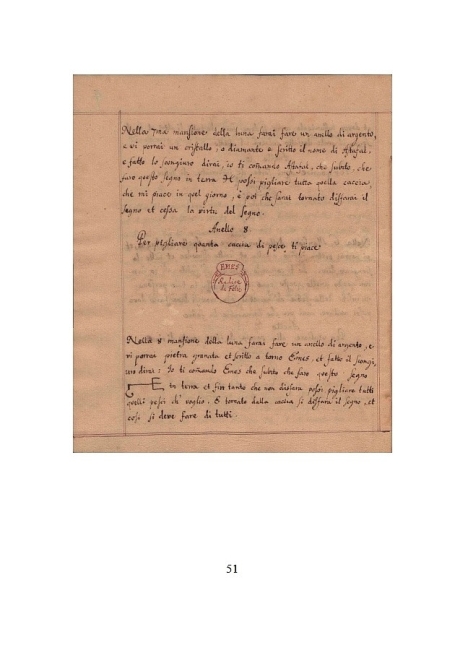 Nella 7ma mansione della luna farai fare un anello di argento,
e vi porrai un cristallo, o diamante e scritto il nome di Atafal,
e fatto lo scongiuro dirai, io ti comando Atafal, che subito, che
faro questo segno in terra H possi pigliare tutta quella caccia,
che mi piace in quel giorno, e poi che sarai tornato disfarai il
segno et cessa la virtù del segno.
Anello 8.
Per pigliare quanta caccia di pesce, ti piace
EMES
Nella 8 mansione della luna farai fare un anello di argento, e
vi porrai pietra granata et scritto a torno Emes, et fatto il scongi,
uro dirai: Io ti comando Emes che subito che faro questo segno
in terra et fin tanto che non disfara possi pigliare tutti
quelli pesci ch' voglio. E tornato dalla caccia si disfara il segno, et
cosi si deve fare di tutti.
51